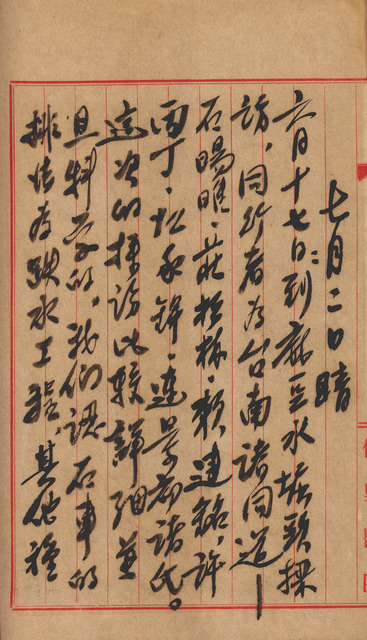 七月二日晴
六月十七日:到麻豆水堀頭採
訪,同行者為台南諸同道——
石暘睢.莊松林.賴建銘.許
丙丁.江家錦.連景初諸氏。
這次的採訪比較詳細並
且科學的,我們認石車的
排法為跌水工程,其他種